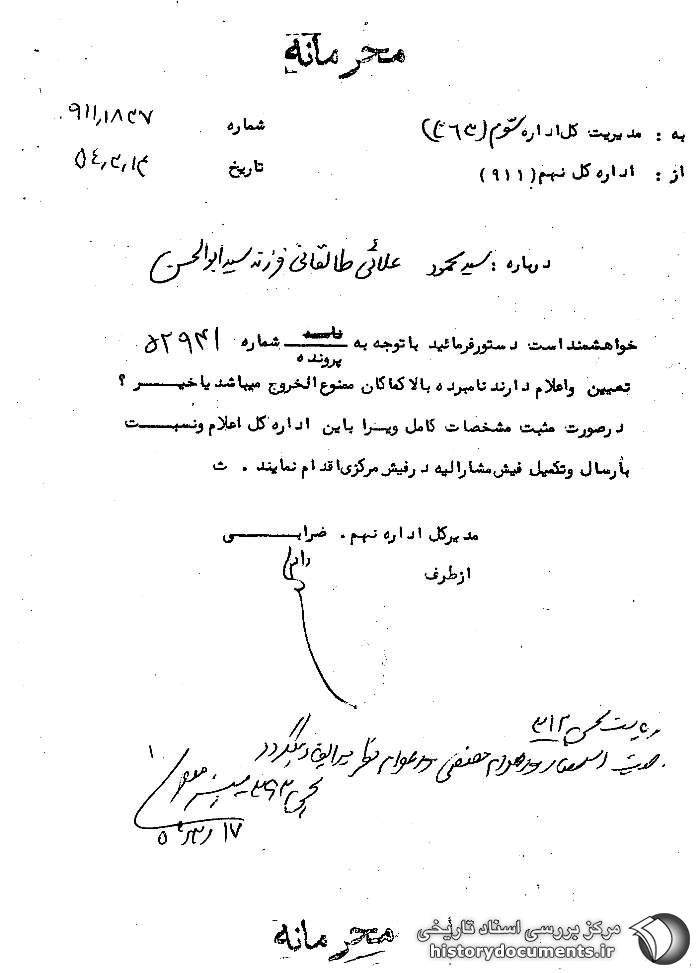 محرمانه
به : مدیریت کل اداره سوم (۳۶۳)
شماره ۹۱۱٫۱۸۳۷
از : اداره کل نهم (۹۱۱)
تاریخ
درباره : سید محمود علائی طالقانی فرزند سید ابوالحسن
خواهشمند است دستور فرمائید با توجه به پرونده شماره ۵۲۹۴۱
تعیین و اعلام دارند نامبرده بالا کماکان ممنوع الخروج میباشد یا خیر ؟
در صورت مثبت مشخصات کامل ویرا باین اداره کل اعلام و نسبت
بارسال و تکمیل فیش مشارالیه در فیش مرکزی اقدام نمایند . ث
مدیر کل اداره نهم . ضرابی
از طرف
ریاست بخش ۳۱۲
۱۷
محرمانه
مرکز بررسی اسناد تاریخی
historydocuments.ir